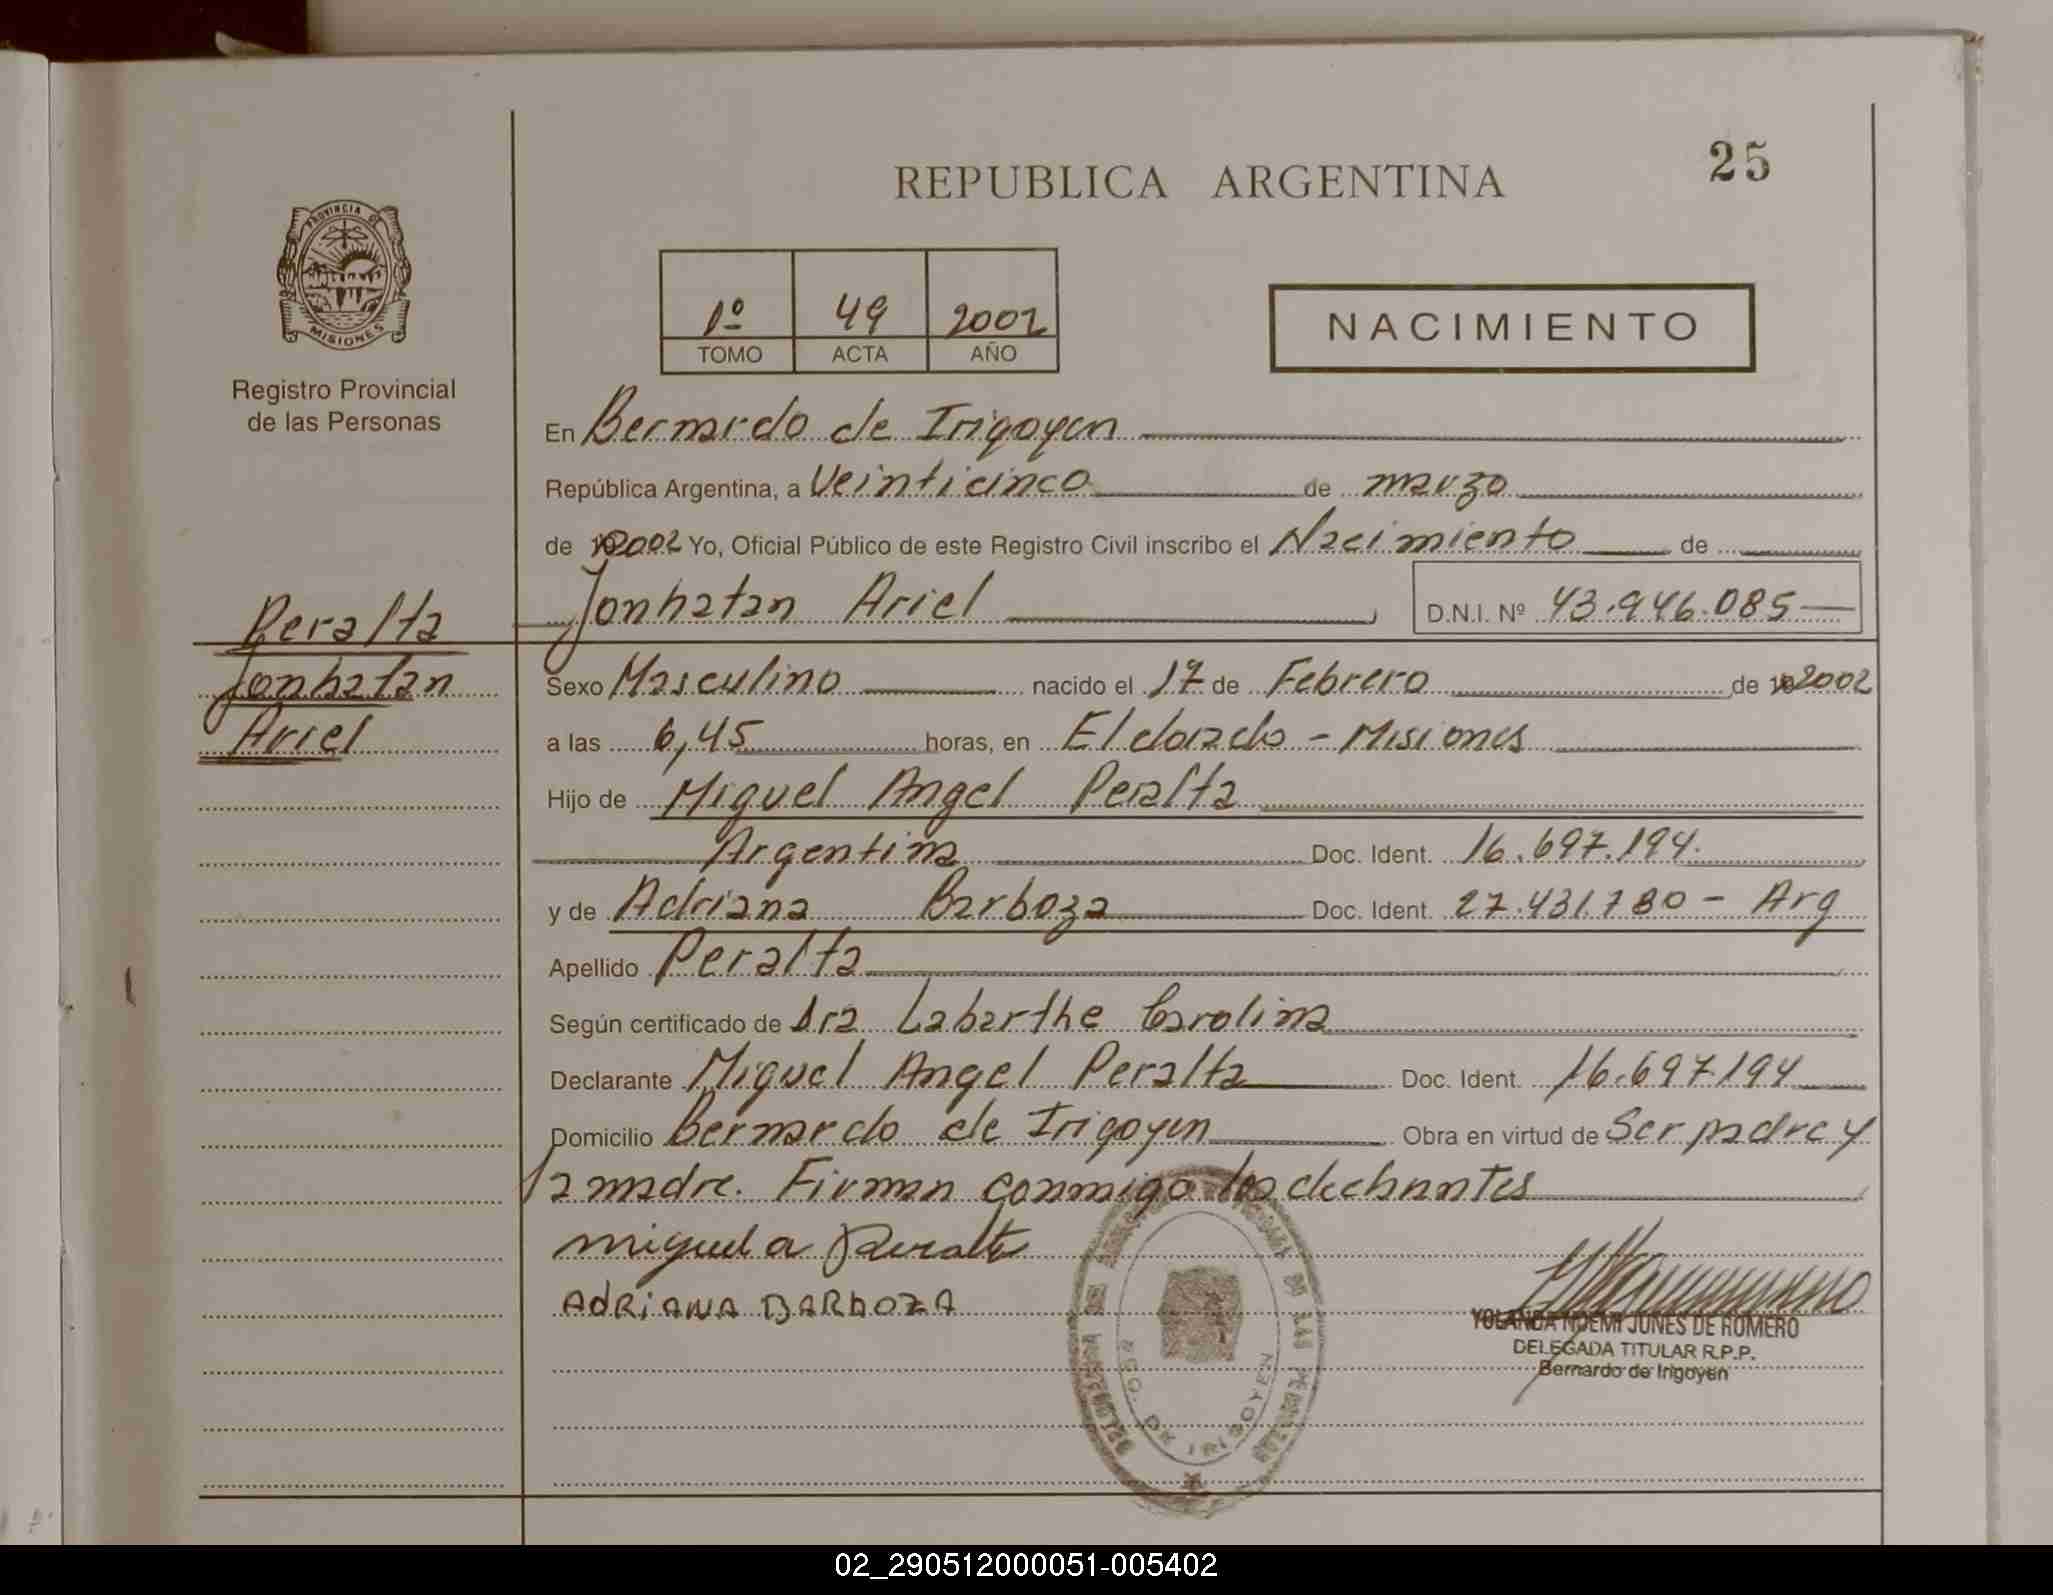 25
REPUBLICA ARGENTINA
PROVINCIA DE
MISIONES
Registro Provincial
de las Personas
1º 49 2002
TOMO ACTA AÑO
NACIMIENTO
En Bernardo de Irigoyen
República Argentina, a Veinticinco de marzo
de 2002 Yo, Oficial Público de este Registro Civil inscribo el Nacimiento de
Jonhatan Ariel D.N.I. Nº 43.946.085
Peralta
Jonhatan
Ariel
Sexo Masculino nacido el 17 de Febrero de 2002
a las 6,45 horas, en Eldorado - Misiones
Hijo de Miguel Angel Peralta
Argentina Doc. Ident. 16.697.194.
y de Adriana Barboza Doc. Ident. 27.431.780 - Arg
Apellido Peralta
Según certificado de Dra Labarthe Carolina
Declarante Miguel Angel Peralta Doc. Ident. 16.697.194
Domicilio Bernardo de Irigoyen Obra en virtud de Ser padre y
la madre. Firman conmigo los declarantes
miguel a Peralta
ADRiANA BARBOZA
BDO. DE IRIGOYEN
YOLANDA NOEMI JUNES DE ROMERO
DELEGADA TITULAR R.P.P.
Bernardo de Irigoyen
02_290512000051-005402